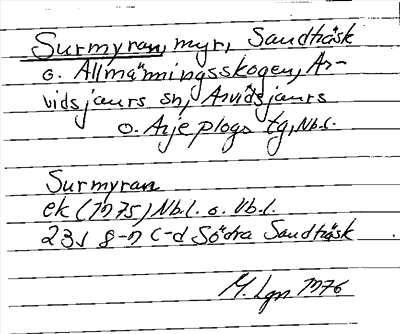 Surmyran, myr, Sandträsk
o. Allmänningsskogen, Ar-
vidsjaurs sn, Arvidsjaurs
o. Arjeplogs tg, Nb.l.
Surmyran
ek (1975) Nb.l. o. Vb.l.
23J g-h c-d Södra Sandträsk
M. Lgn 1976